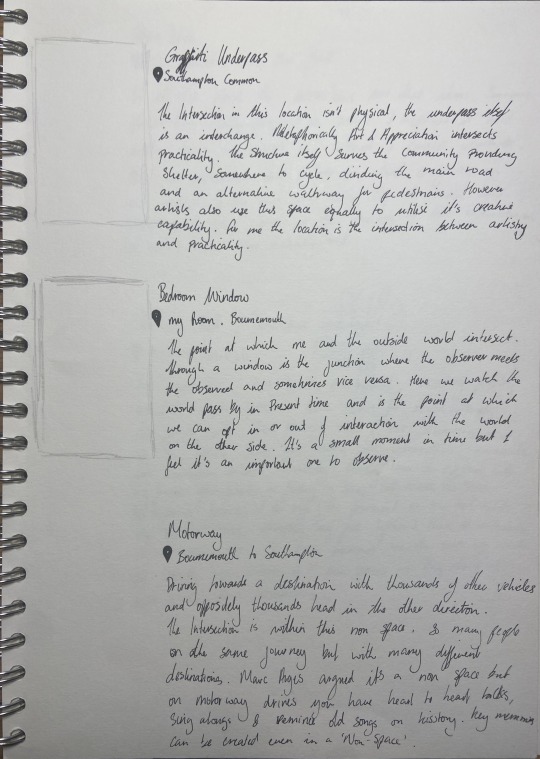 Graffiti Underpass
Southampton Common
The Intersection in this location isn't physical, the underpass itself
is an interchange. Metaphorically Art & Appreciation intersects
practicality. The structure itself serves the community providing
shelter, somewhere to cycle, dividing the main road
and an alternative walkway for pedestrians. However
artists also use this space equally to utilise it's creative
capability. For me the location is the intersection between artistry
and practicality.
Bedroom Window
my Room. Bournemouth
The point at which me and the outside world intersect.
Through a window is the junction where the observer meets
the observed and sometimes vice versa. Here we watch the
world pass by in Present time and is the point at which
we can opt in or out of interaction with the world
on the other side. It's a small moment in time but I
feel it's an important one to observe.
Motorway
Bournemouth to Southampton
Driving towards a destination with thousands of other vehicles
and oppositely thousands head in the other direction.
The Intersection is within this non space. So many people
on the same journey but with many different
destinations. Marc argued it's a non space but
on motorway drives you have head to head talks,
Sing alongs & old songs on Key
can be created even in a 'Non-Space'.